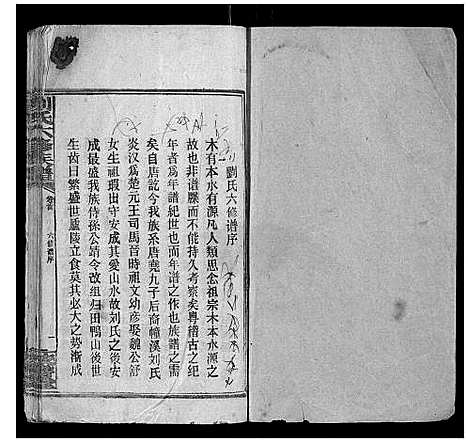 劉氏六修譜序
木有本水有源凡人類思念祖宗木本水源之
故也非譜牒而不能持久考察矣粵稽古之紀
年者為年譜紀世也而年譜之作也族譜之需
矣自唐訖今我族系唐堯九子后裔幢溪刘氏
炎汉為楚元王司馬百時祖文幼彦娶魏公舒
女生祖瑕出守安成其爱山水故刘氏之後安
成最盛我族侍孫公靖令改组归田鸭山後世
生齿日繁盛世庐陵立食莫其必大之势渐成
劉氏六修族譜
卷首
六修谱序
一